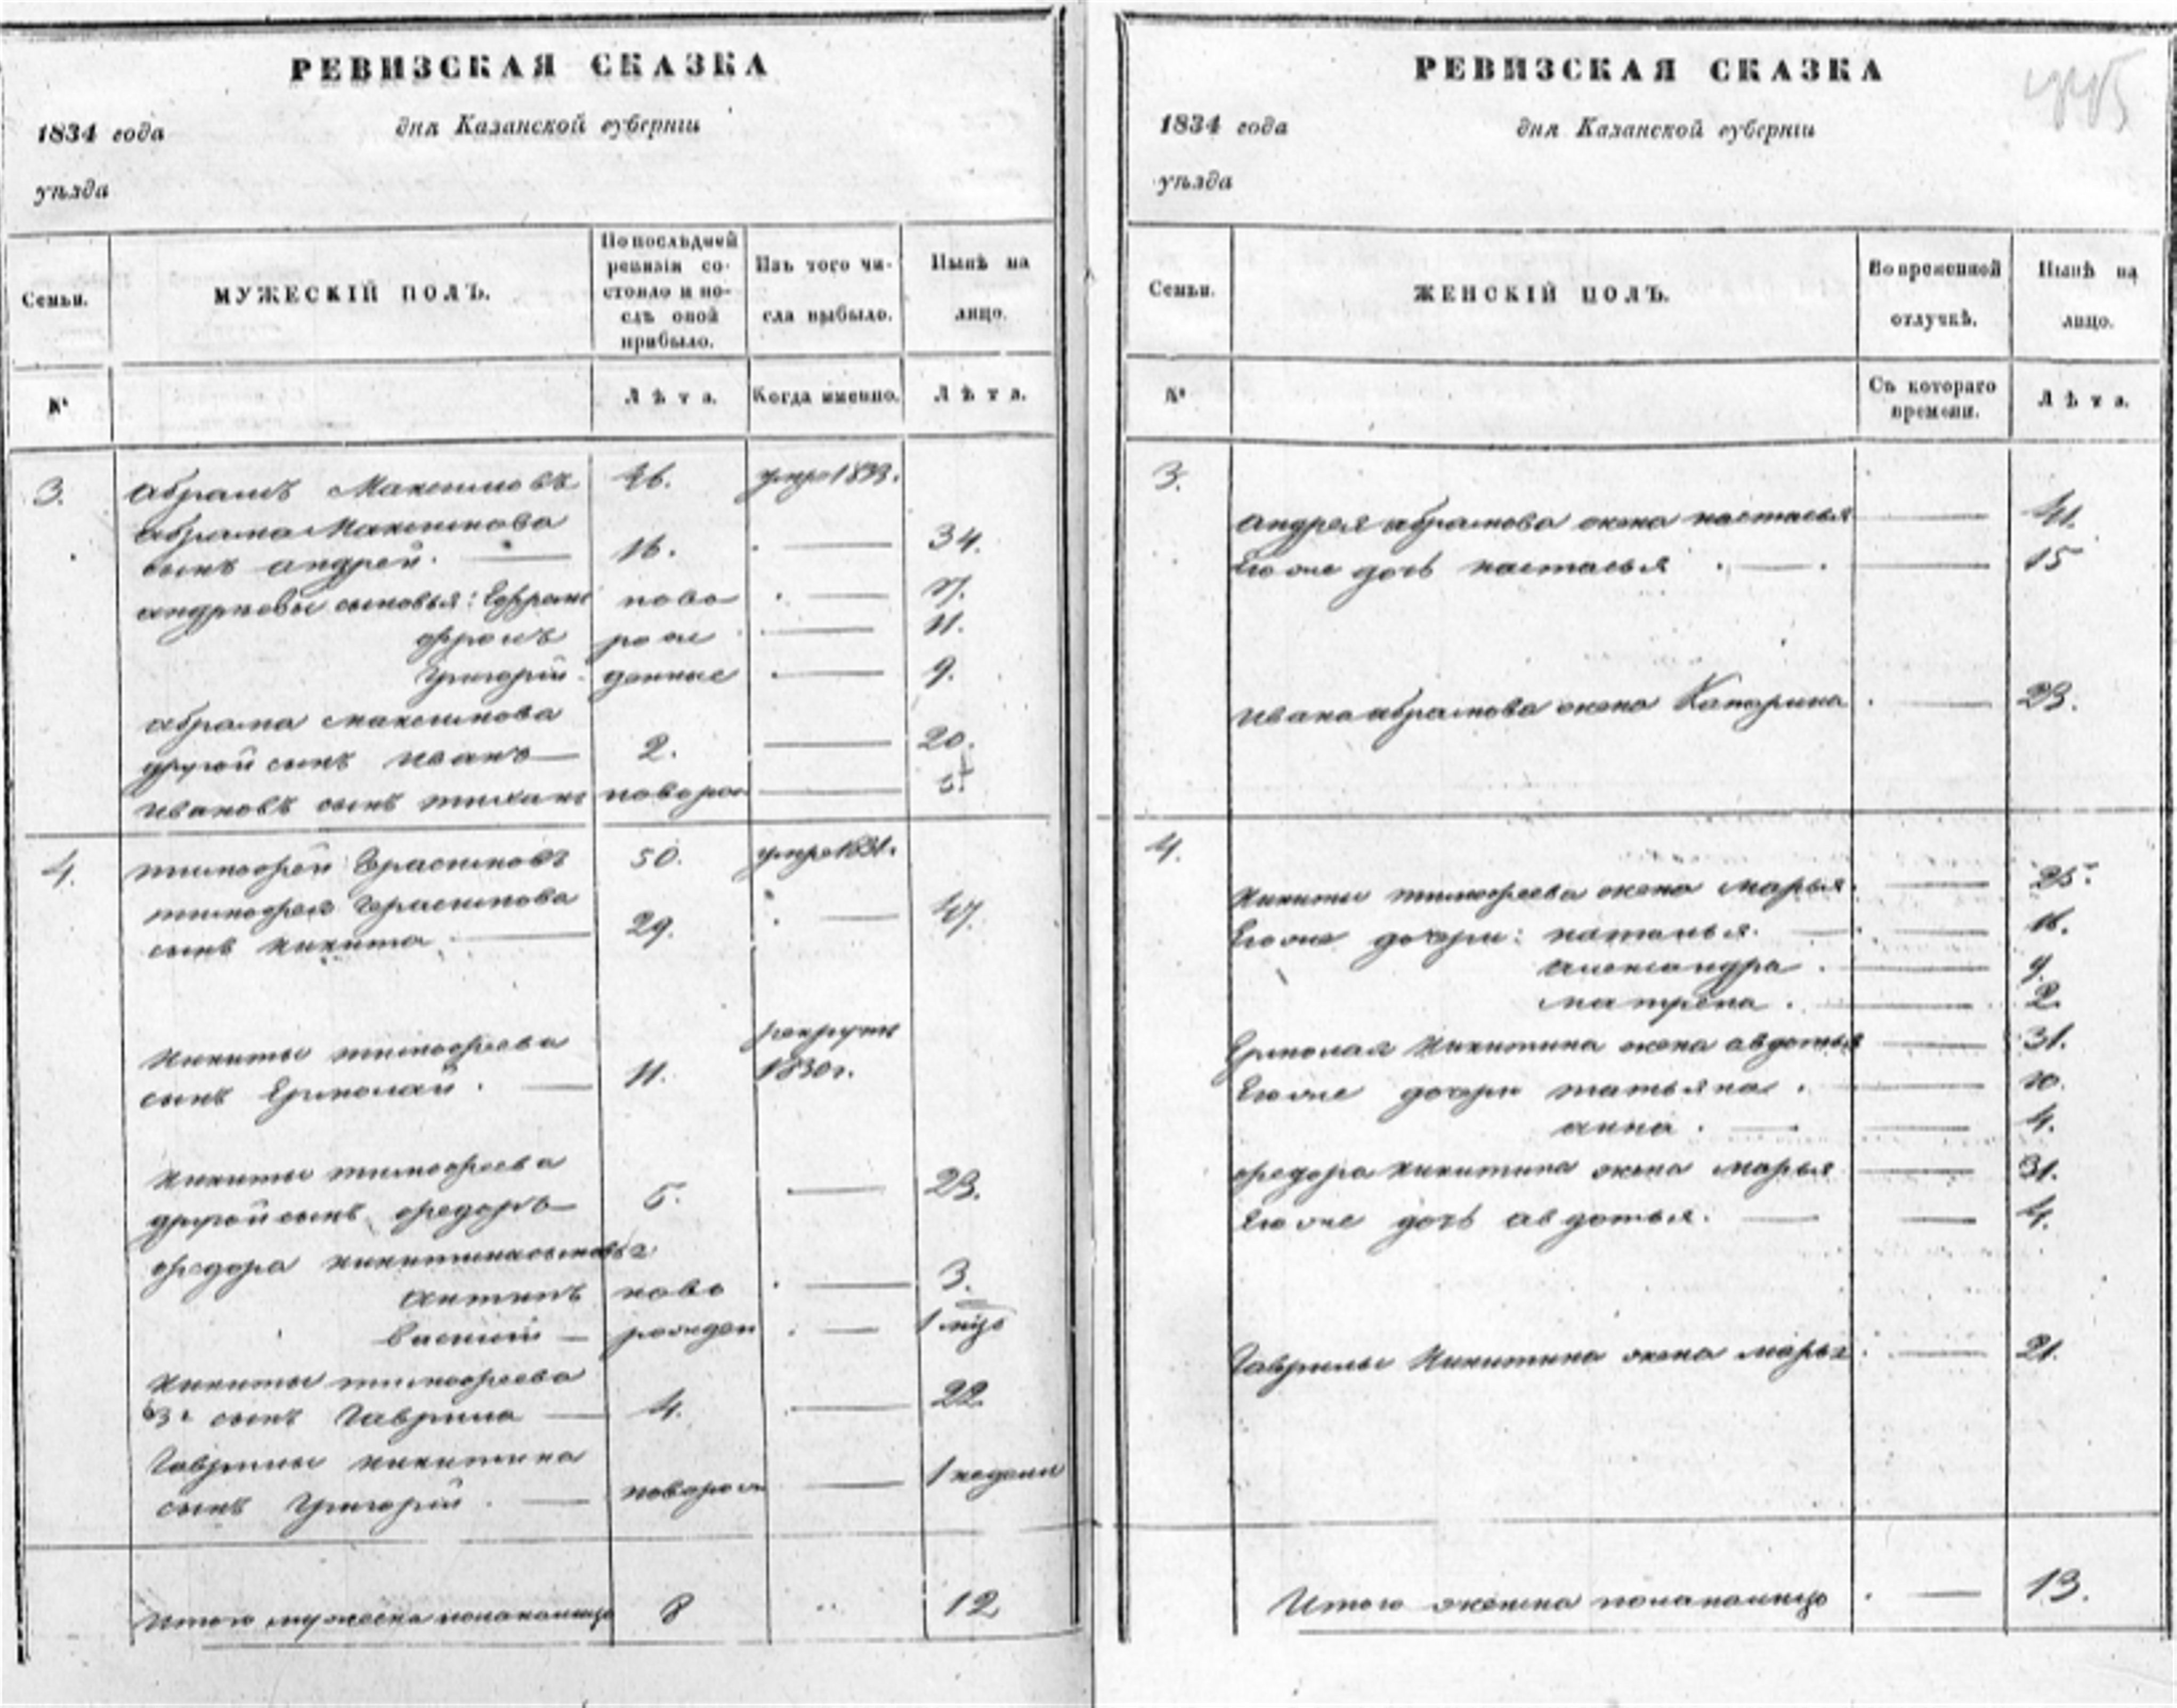 РЕВИЗСКАЯ СКАЗКА
1834 года
дня Казанской губернiи
уѣзда
Семьи.
МУЖЕСКIЙ ПОЛЪ.
По послѣдней
ревизiи со-
стояло и по-
слѣ оной
прибыло.
Изъ того чи-
сла выбыло.
Нынѣ на
лицо.
№
Лѣта.
Когда именно.
Лѣта.
3.
Абрамъ Максимовъ
46.
умре 1833.
Абрама Максимова
сынъ Андрей.
16.
34.
Андреевы сыновья: Ефремъ
ново
фролъ
рож
11.
Григорiй.
денные
9.
Абрама Максимова
другой сынъ Иванъ
2.
20.
Ивановъ сынъ Тиханъ
новорож
4.
Тимофей Герасимовъ
50.
умре 1831.
Тимофея Герасимова
сынъ Никита.
29.
47.
Никиты Тимофеева
сынъ Ермолай.
11.
рекрутъ
1830 г.
Никиты Тимофеева
другой сынъ Федоръ
5.
23.
Федора Никитина сыновья
Антипъ
ново
3.
Василiй
рожден
1 мѣцъ
Никиты Тимофеева
3й сынъ Гаврила
4.
22.
Гаврилы Никитина
сынъ Григорiй.
новорож
1 недели
Итого мужеска пола налицо
8
12
РЕВИЗСКАЯ СКАЗКА
1834 года
дня Казанской губернiи
уѣзда
Семьи.
ЖЕНСКIЙ ПОЛЪ.
Во временной
отлучкѣ.
Нынѣ на
лицо.
№
Съ котораго
времени.
Лѣта.
3.
Андрея Абрамова жена Настасья
41.
Его же дочь Настасья
15
Ивана Абрамова жена Катарина
23.
4.
Никиты Тимофеева жена Марья.
25.
Его же дочери: Наталья.
16.
Александра.
9.
Матрена.
2.
Ермолая Никитина жена Авдотья
31.
Его же дочери Татьяна.
10.
Анна.
4.
Федора Никитина жена Марья
31.
Его же дочь Авдотья.
4.
Гаврилы Никитина жена Марья
21.
Итого женска пола налицо
13.